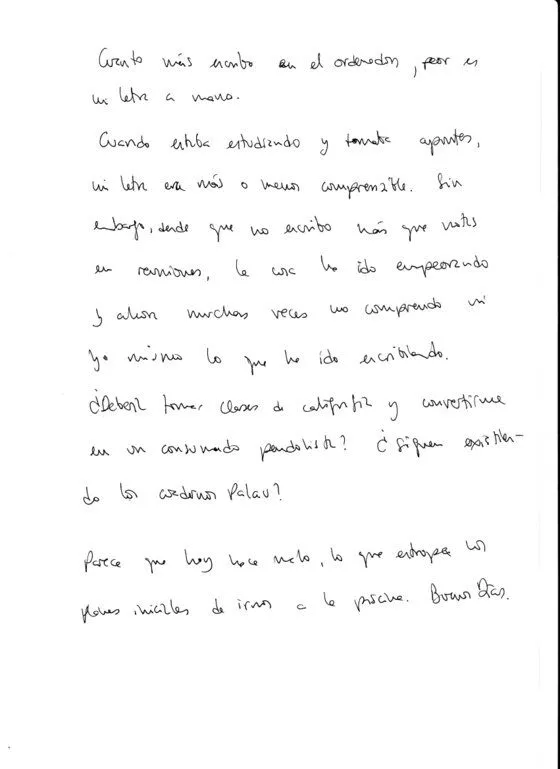 Cuanto más escribo en el ordenador, peor es
mi letra a mano.
Cuando estaba estudiando y tomaba apuntes,
mi letra era más o menos comprensible. Sin
embargo, desde que no escribo más que notas
en reuniones, la cosa ha ido empeorando
y ahora muchas veces no comprendo ni
yo mismo lo que he ido escribiendo.
¿Debería tomar clases de caligrafía y convertirme
en un consumado pendolista? ¿Siguen existien-
do los cuadernos Palau?
Parece que hoy hace malo, lo que estropea los
planes iniciales de irnos a la piscina. Buenos Días.